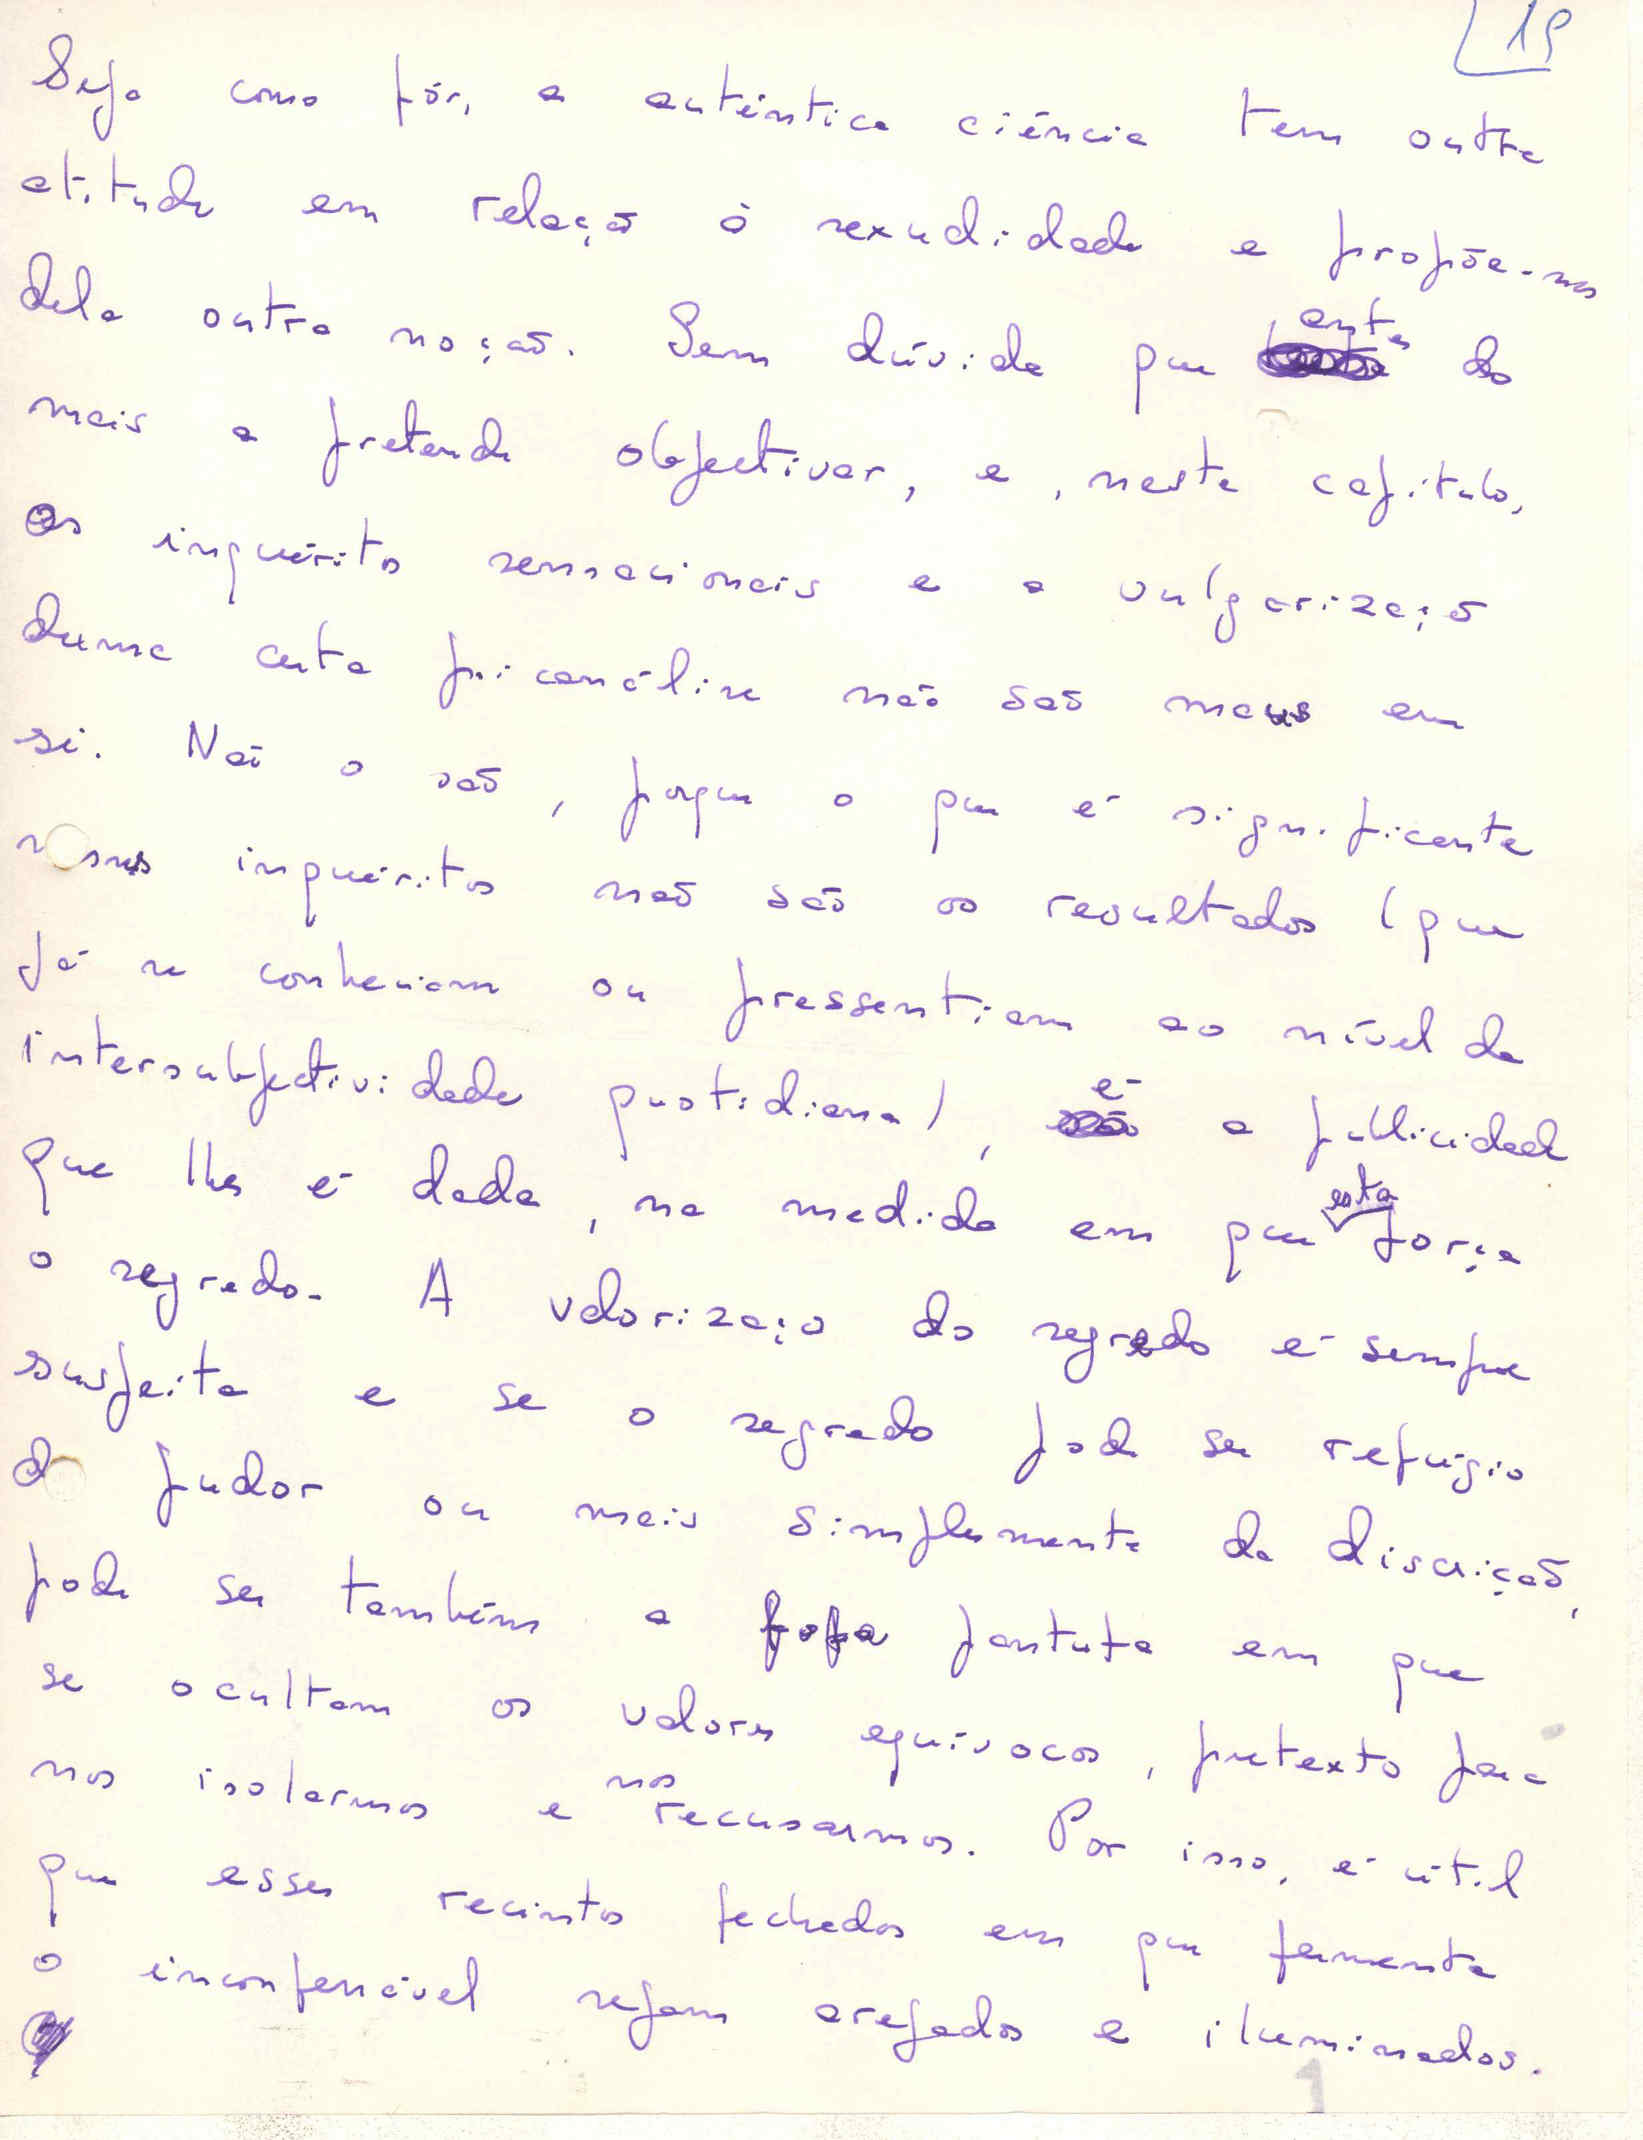 19
Seja como fôr, a autêntica ciência tem outra
atitude em relação à sexualidade e propõe-nos
dela outra noção. Sem dúvida que antes do
mais a pretende objectivar, e, neste capítulo,
os inquéritos sensacionais e a vulgarização
duma certa psicanálise não são maus em
si. Não o são, porque o que é significante
nesses inquéritos não são os resultados (que
já se conheciam ou pressentiam ao nível da
intersubjectividade quotidiana), é a publicidade
que lhes é dada, na medida em que esta força
o segredo. A valorização do segredo é sempre
suspeita e se o segredo pode ser refúgio
do pudor ou mais simplesmente da discrição,
pode ser também a fofa pantufa em que
se ocultam os valores equívocos, pretexto para
nos isolarmos e nos recusarmos. Por isso, é útil
que esses recintos fechados em que fermenta
o inconfessável sejam arejados e iluminados.
1